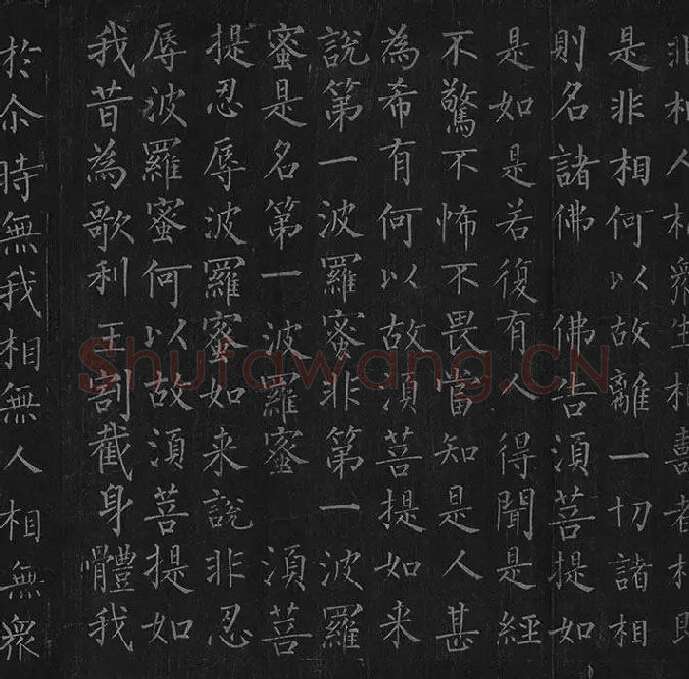 非相人相衆生相壽者相即
是非相何以故離一切諸相
則名諸佛 佛告須菩提如
是如是若復有人得聞是經
不驚不怖不畏當知是人甚
為希有何以故須菩提如来
說第一波羅蜜非第一波羅
蜜是名第一波羅蜜 須菩
提忍辱波羅蜜如来說非忍
辱波羅蜜何以故須菩提如
我昔為歌利王割截身體我
於尒時無我相無人相無衆
Shufawang.CN